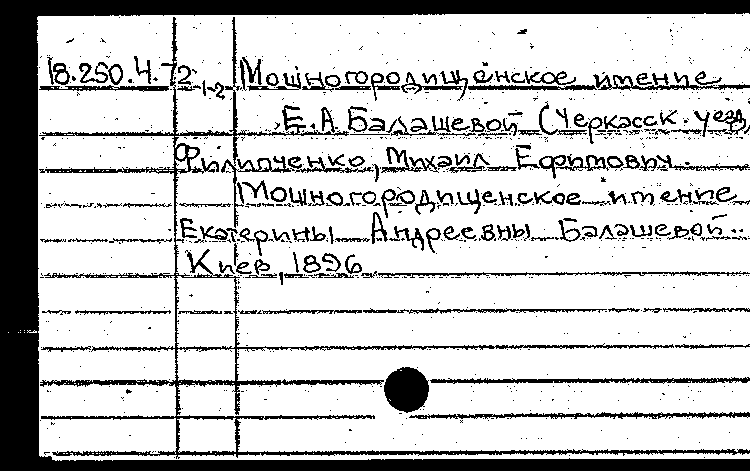 18.250.4.72-1-2 Мошногородищенское имение
Е.А Балашевой (Черкасск. уезд)
Филипченко, Михаил Ефимович.
Мошногородищенское имение
Екатерины Андреевны Балашевой..
Киев, 1896